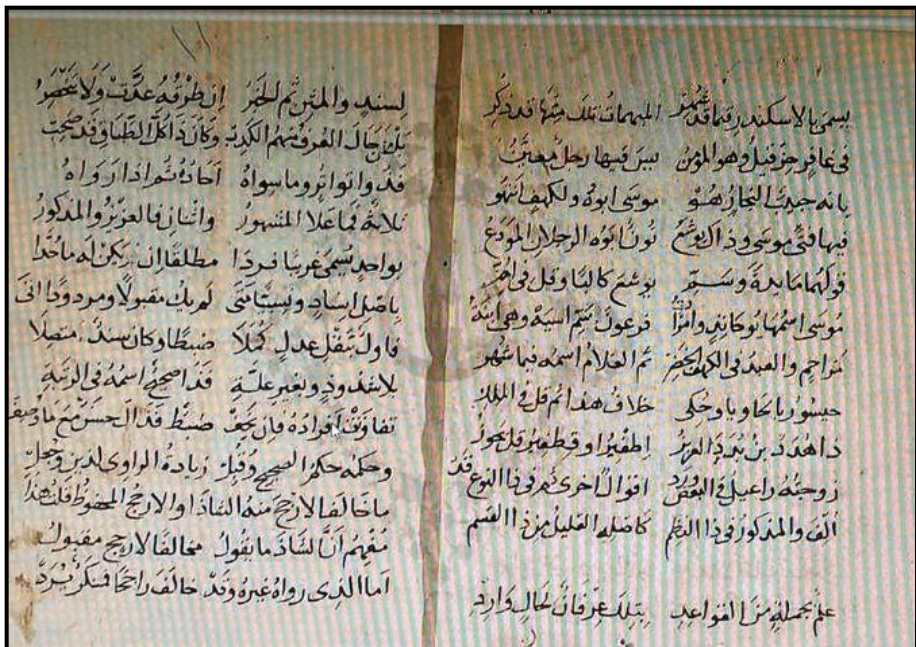 يسمى بالاسكندر فيما قد شهر المبهمات تلك منها قد ذكر
في غافر حزقيل وهو المؤمن بيس فيها رجل معين
بانه حبيب النجار هو موسى ابوه ولكهف انتهوا
فيها فتى موسى وذاك يوشع نون ابوه الرجلان المودع
قولهما مايدة وسم يوشع كالبا وقل في
موسى اسمها يوكاند وامرأة فرعون سم اسية وهي ابنة
مزاحم والعبد في الكهف الخضر ثم الغلام اسمه فيما شهر
حيسور يا حا ويا وحكي خلاف هذا ثم قل في الملك
ذا هدد بن بدد العزيز اطفير او قطفير قل يجوز
زوجته راعيل في البعض ورد اقوال اخرى ثم في ذا النوع قد
ألف والمذكور في ذا النظم كاصله القليل من ذا القسم
علم بجملة من القواعد بتلك عرفان لحال وارد
١١
لسند والمتن ثم الخبر ان طرقه عدت ولا تنحصر
تلك رجال العرف منهم الكذب وكان ذا كل الطباق قد صحب
فذا واتواتر وما سواه آحاده ثم اذا رواه
ثلاثة فما علا المشهور واثنان فالعزيز والمذكور
بواحد سمي غريبا فردا مطلقا ان يكن له ما حدا
باصل اسناد ونسبيا متى لم يك مقبولا ومردودا اتى
فاول بنقل عدل كملا ضبطا وكان سنده متصلا
بلا شذوذ وبغير علة قد اصحه اسمه في الرتبة
تفاوتت افراده فان يخف ضبط فذاك حسن مع ما وصف
وحكمه حكم الصحيح وقبل زيادة الراوي لدين وجعل
ما خالف الارجح منه الشاذا والارجح المحفوظ قلت هذا
مفهم ان الشاذ ما يقول مخالفا لارجح مقبول
اما الذي رواه غيره وقد خالف راجحا فمنكر يرد